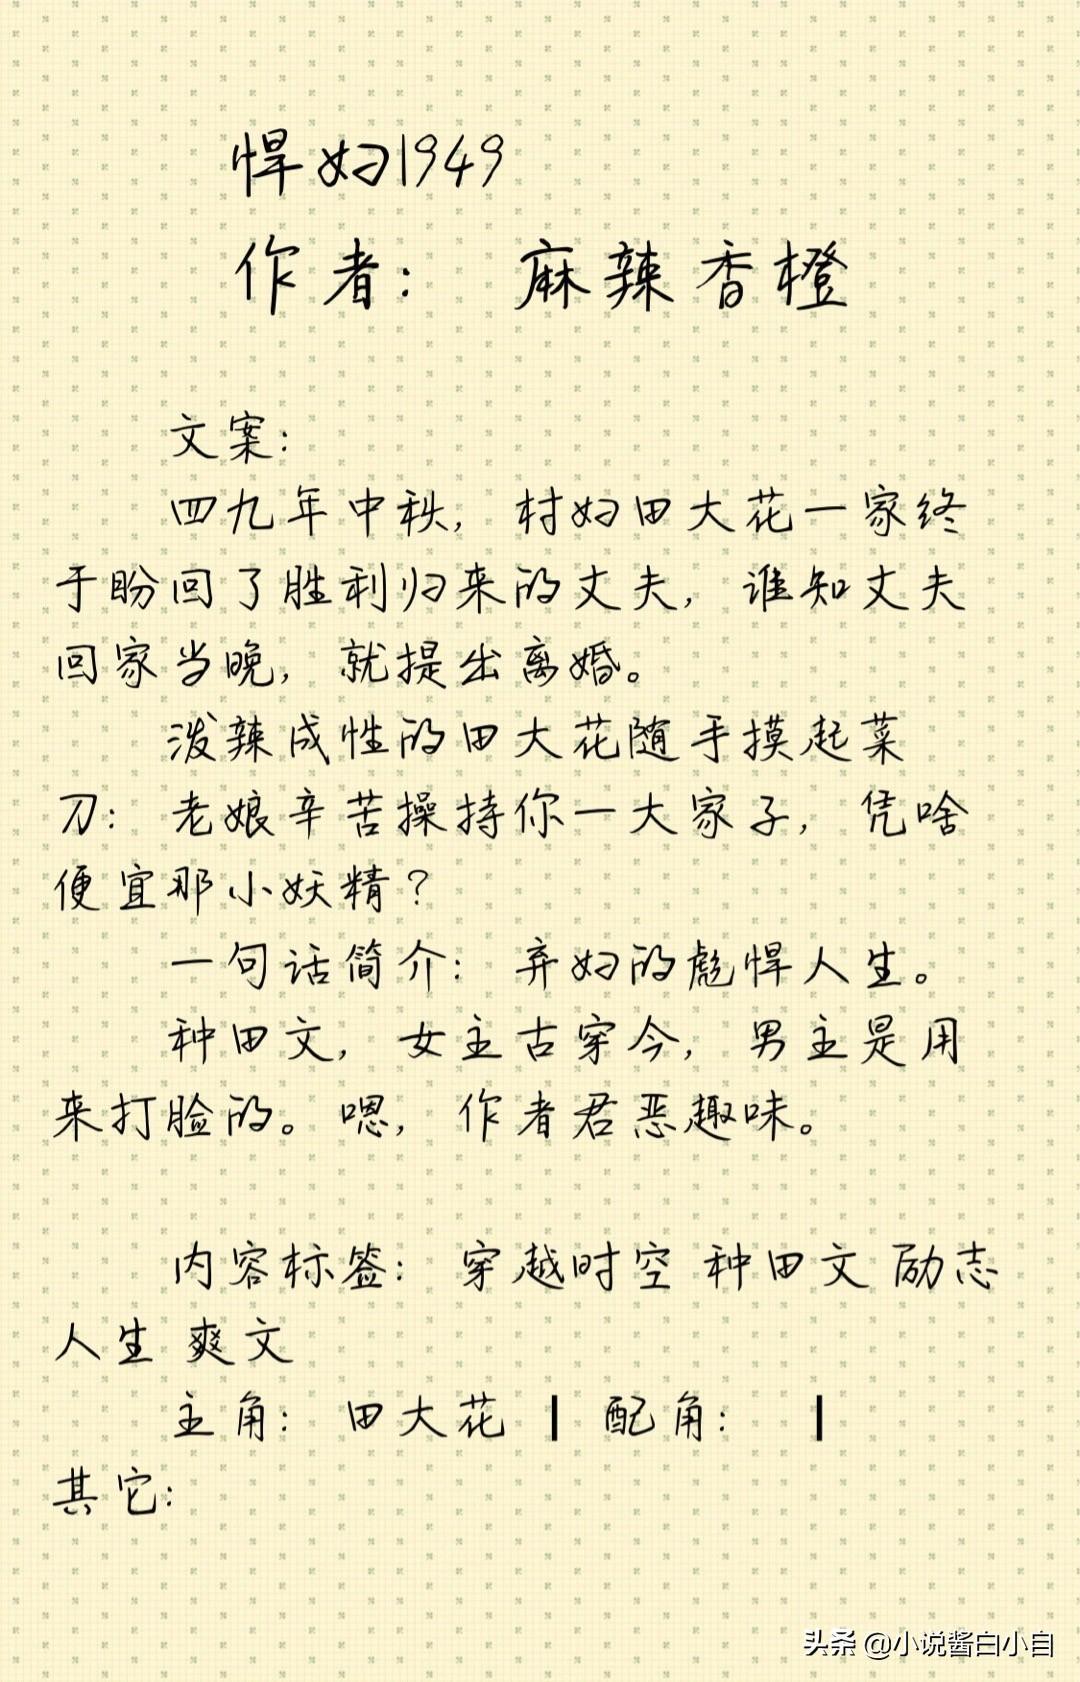 悍妇1949
作者： 麻辣香橙
文案：
四九年中秋，村妇田大花一家终
于盼回了胜利归来的丈夫，谁知丈夫
回家当晚，就提出离婚。
泼辣成性的田大花随手摸起菜
刀：老娘辛苦操持你一大家子，凭啥
便宜那小妖精？
一句话简介：弃妇的彪悍人生。
种田文，女主古穿今，男主是用
来打脸的。嗯，作者君恶趣味。
内容标签：穿越时空 种田文 励志
人生 爽文
主角：田大花 ┃ 配角： ┃
其它：
头条 @小说酱白小白